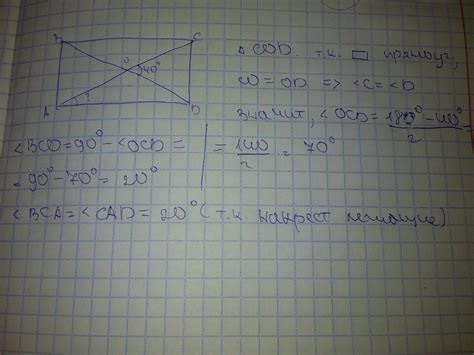 B C
O 40°
A ? D
△ COD. т.к. ▭ прямоуг,
CO = OD => <C = <D
Значит, <OCD = 180° - 40° / 2 =
= 140 / 2 = 70°
<BCO = 90° - <OCD =
= 90° - 70° = 20°
<BCA = <CAD = 20° (т.к. накрест лежащие)